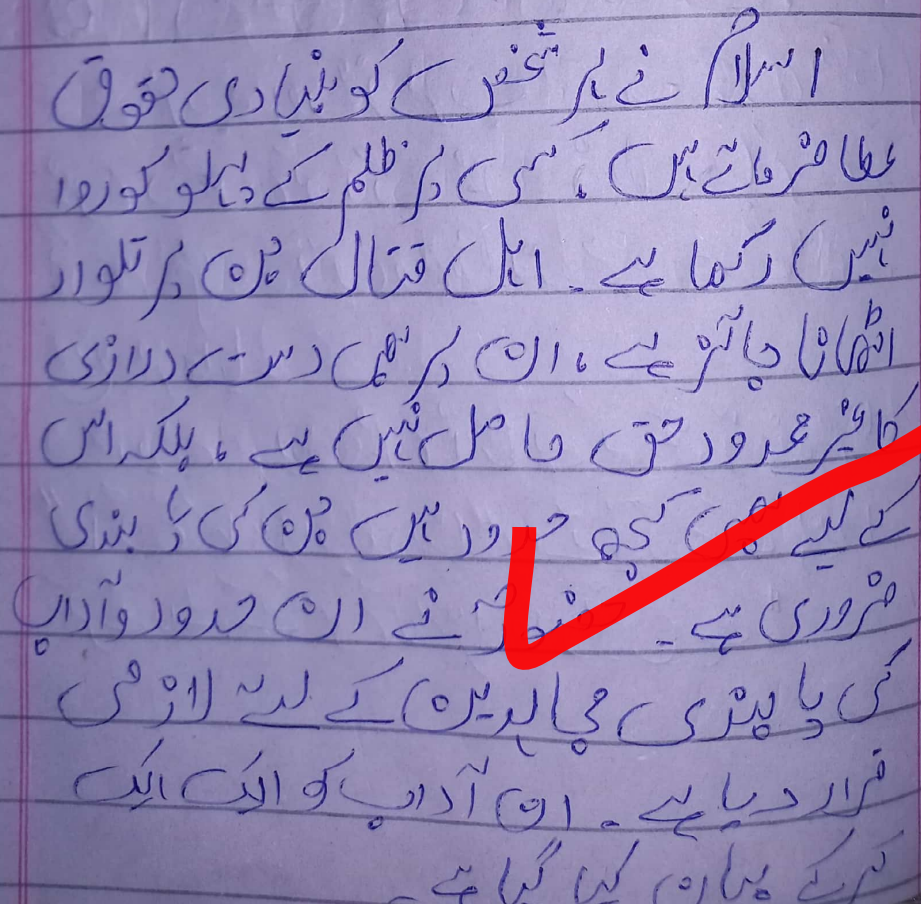 اسلام نے ہر شخص کو بنیادی حقوق
عطا فرمائے ہیں، کسی پر ظلم کے پہلو کو روا
نہیں رکھا ہے۔ اہل قتال جن پر تلوار
اٹھانا جائز ہے، ان پر بھی دست درازی
کا غیر محدود حق حاصل نہیں ہے، بلکہ اس
کے لیے بھی کچھ حدود ہیں جن کی پابندی
ضروری ہے۔ حضورؐ نے ان حدود و آداب
کی پابندی مجاہدین کے لیے لازمی
قرار دیا ہے۔ ان آداب کو ایک ایک
کرکے بیان کیا گیا ہے۔